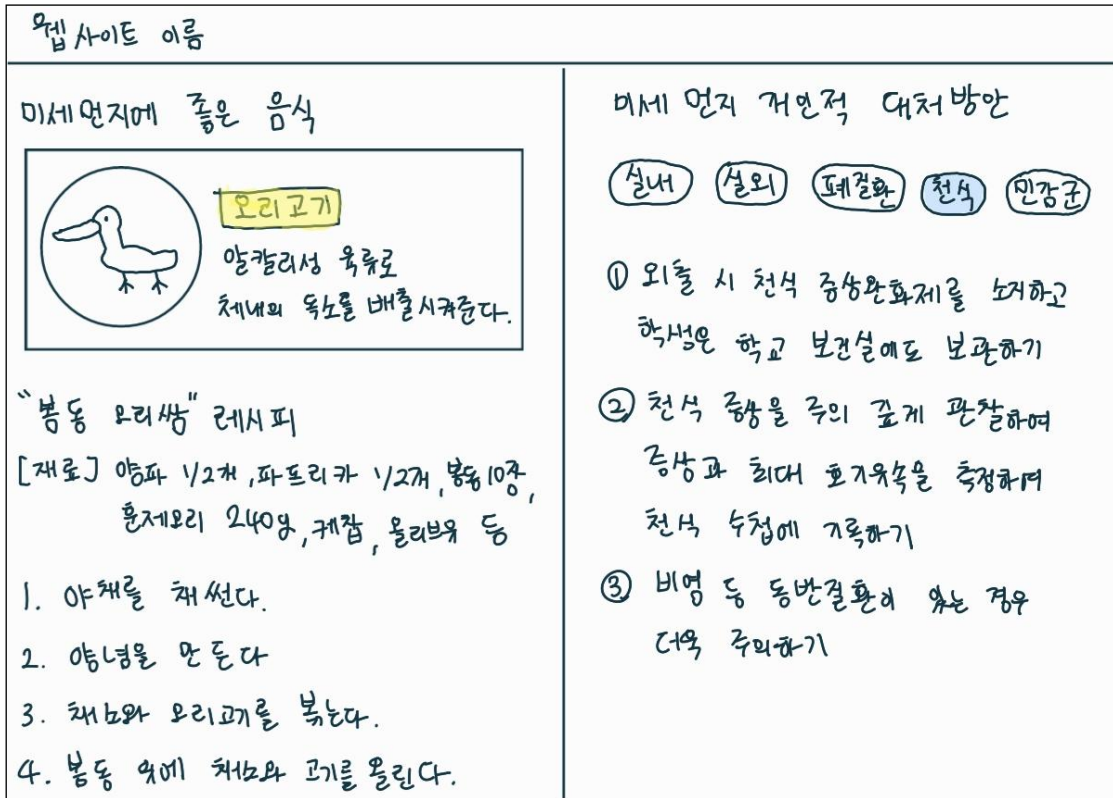 웹사이트 이름
미세먼지에 좋은 음식
오리고기
알칼리성 육류로
체내의 독소를 배출시켜준다.
"봄동 오리쌈" 레시피
[재료] 양파 1/2개, 파프리카 1/2개, 봄동10장,
훈제오리 240g, 케찹, 올리브유 등
1. 야채를 채썬다.
2. 양념을 만든다
3. 채소와 오리고기를 볶는다.
4. 봄동 위에 채소와 고기를 올린다.
미세먼지 개인적 대처방안
실내 실외 폐질환 천식 민감군
① 외출 시 천식 증상완화제를 소지하고
학생은 학교 보건실에도 보관하기
② 천식 증상을 주의 깊게 관찰하여
증상과 최대 호기유속을 측정하여
천식 수첩에 기록하기
③ 비염 등 동반질환이 있는 경우
더욱 주의하기